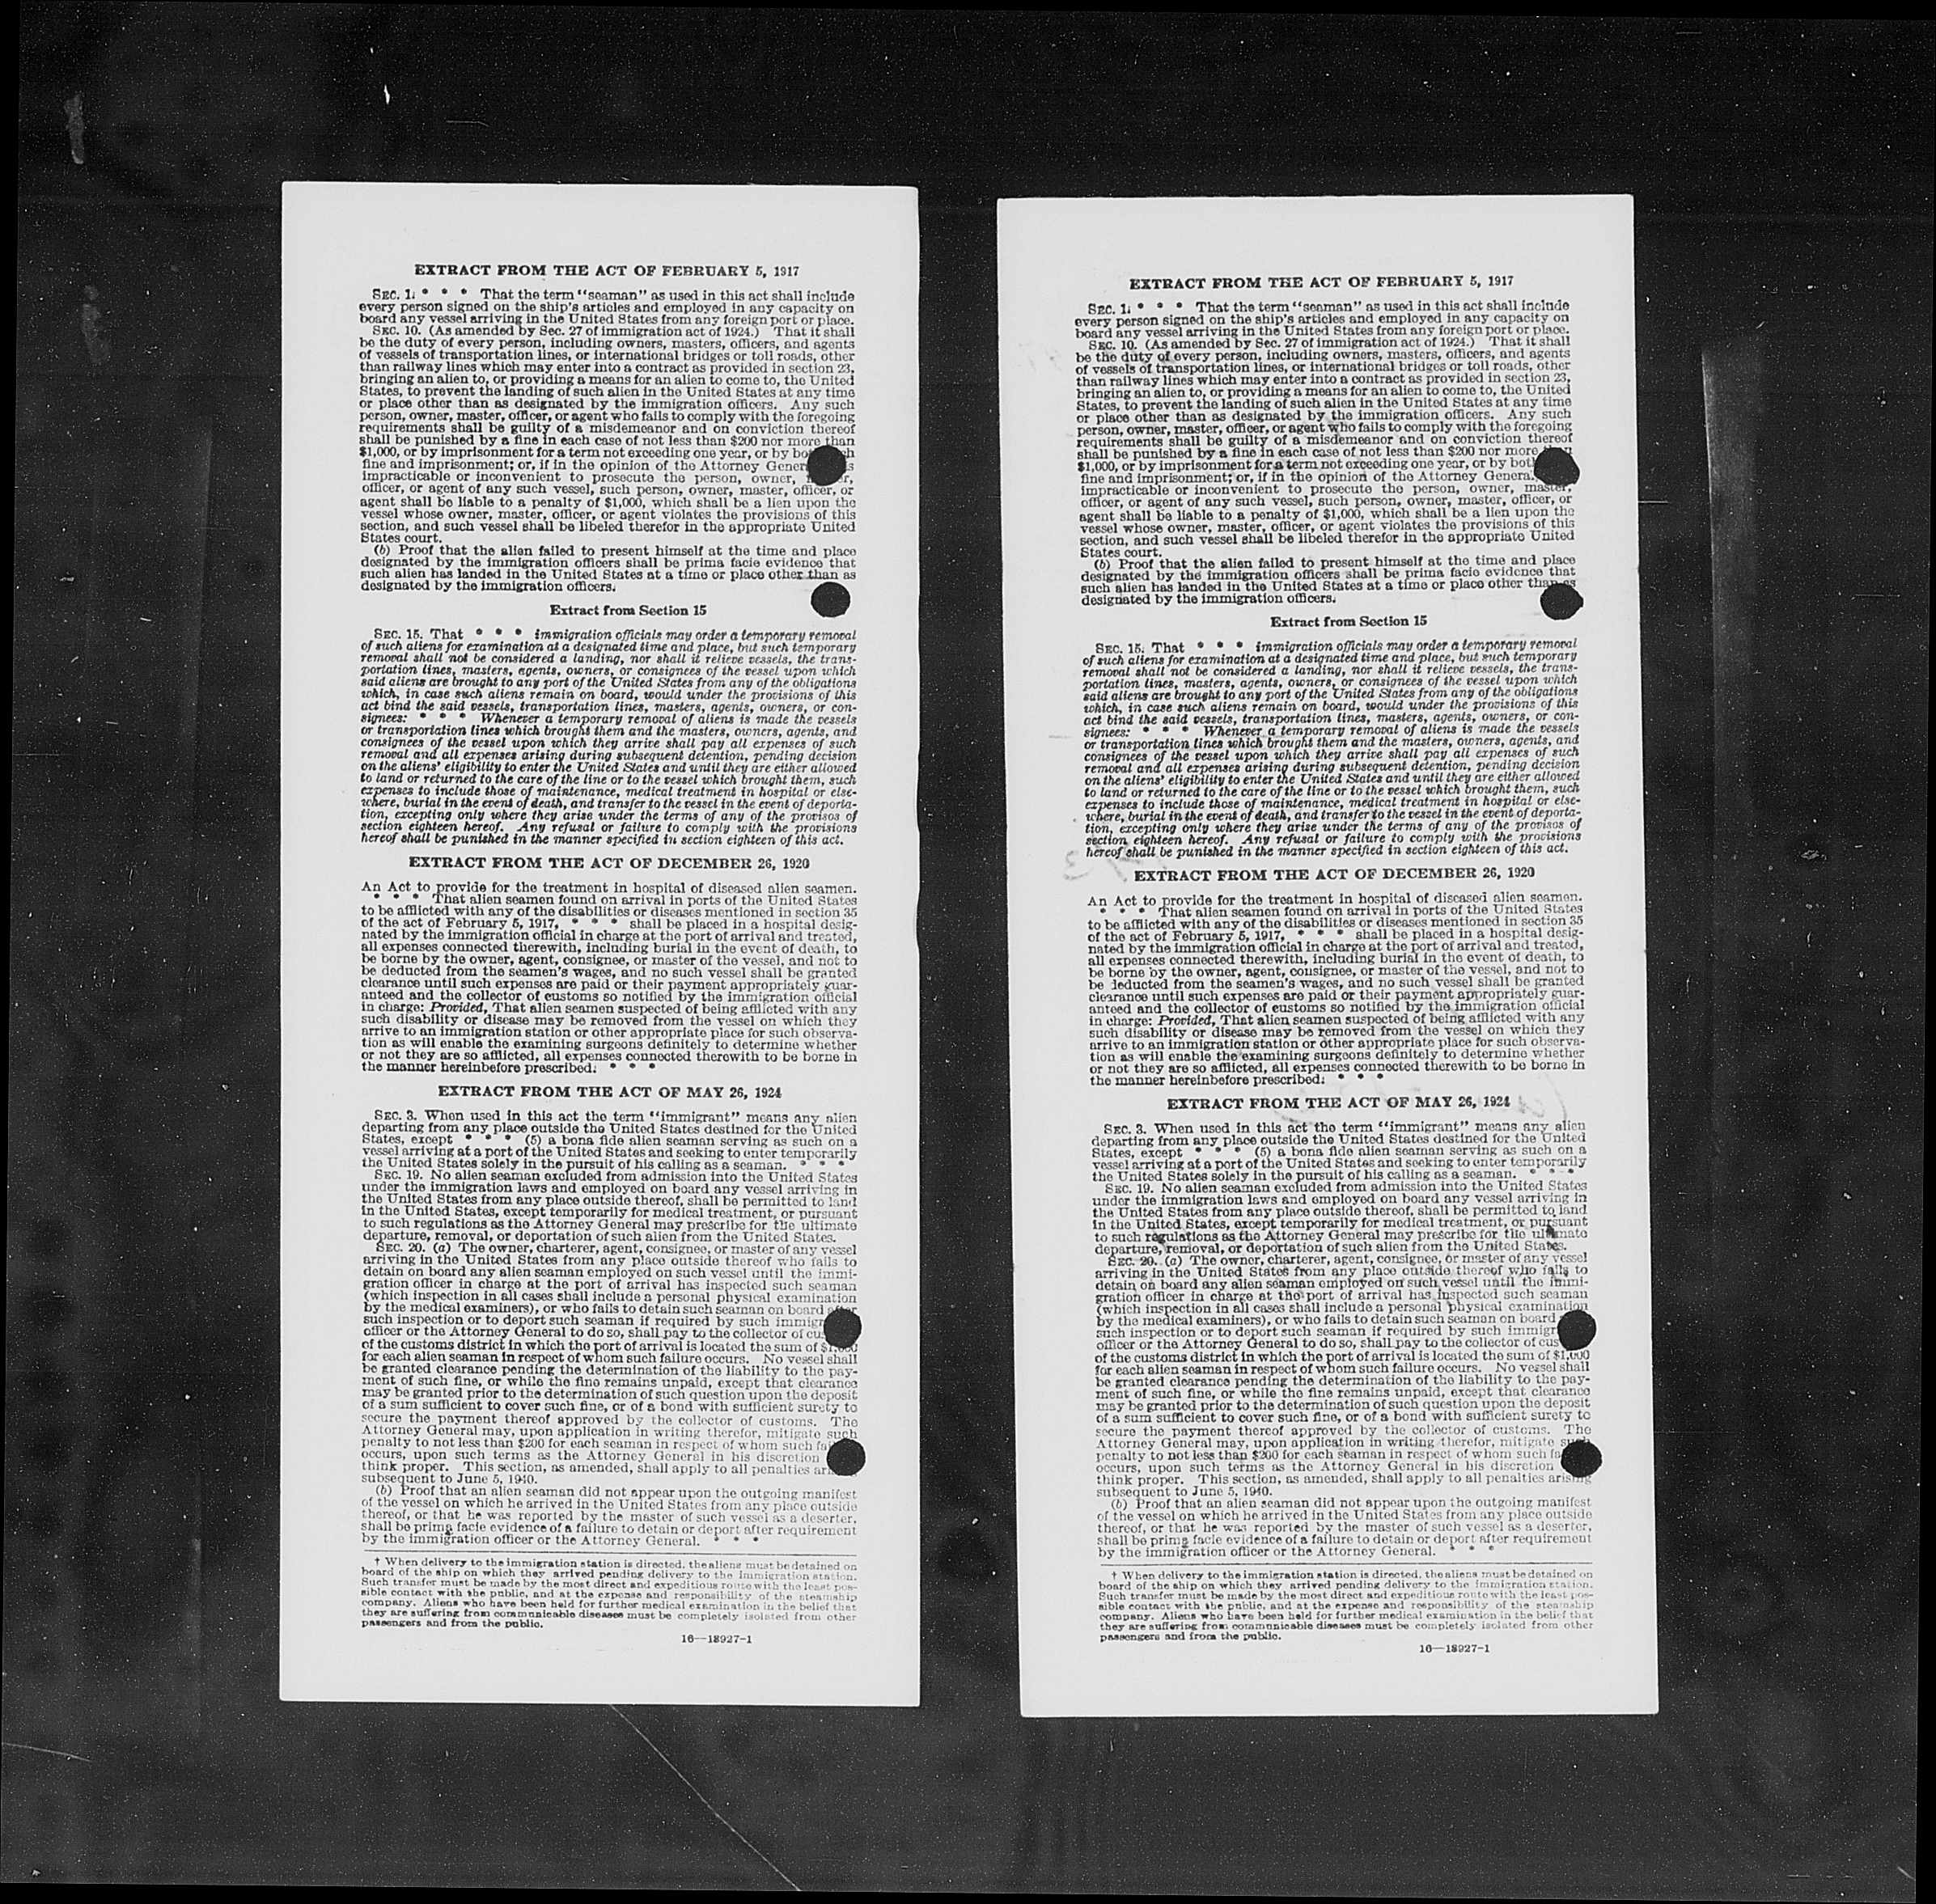 EXTRACT FROM THE ACT OF FEBRUARY 5, 1917
SEC. 1. * * * That the term "seaman" as used in this act shall include
every person signed on the ship's articles and employed in any capacity on
board any vessel arriving in the United States from any foreign port or place.
SEC. 10. (As amended by Sec. 27 of immigration act of 1924.) That it shall
be the duty of every person, including owners, masters, officers, and agents
of vessels of transportation lines, or international bridges or toll roads, other
than railway lines which may enter into a contract as provided in section 23,
bringing an alien to, or providing a means for an alien to come to, the United
States, to prevent the landing of such alien in the United States at any time
or place other than as designated by the immigration officers. Any such
person, owner, master, officer, or agent who fails to comply with the foregoing
requirements shall be guilty of a misdemeanor and on conviction thereof
shall be punished by a fine in each case of not less than $200 nor more than
$1,000, or by imprisonment for a term not exceeding one year, or by
fine and imprisonment; or, if in the opinion of the Attorney
impracticable or inconvenient to prosecute the person, owner,
officer, or agent of any such vessel, such person, owner, master, officer, or
agent shall be liable to a penalty of $1,000, which shall be a lien upon the
vessel whose owner, master, officer, or agent violates the provisions of this
section, and such vessel shall be libeled therefor in the appropriate United
States court.
(b) Proof that the alien failed to present himself at the time and place
designated by the immigration officers shall be prima facie evidence that
such alien has landed in the United States at a time or place other than as
designated by the immigration officers.
Extract from Section 15
SEC. 15. That * * * immigration officials may order a temporary removal
of such aliens for examination at a designated time and place, but such temporary
removal shall not be considered a landing, nor shall it relieve vessels, the trans-
portation lines, masters, agents, owners, or consignees of the vessel upon which
said aliens are brought to any port of the United States from any of the obligations
which, in case such aliens remain on board, would under the provisions of this
act bind the said vessels, transportation lines, masters, agents, owners, or con-
signees: * * * Whenever a temporary removal of aliens is made the vessels
or transportation lines which brought them and the masters, owners, agents, and
consignees of the vessel upon which they arrive shall pay all expenses of such
removal and all expenses arising during subsequent detention, pending decision
on the aliens' eligibility to enter the United States and until they are either allowed
to land or returned to the care of the line or to the vessel which brought them, such
expenses to include those of maintenance, medical treatment in hospital or else-
where, burial in the event of death, and transfer to the vessel in the event of deporta-
tion, excepting only where they arise under the terms of any of the provisos of
section eighteen hereof. Any refusal or failure to comply with the provisions
hereof shall be punished in the manner specified in section eighteen of this act.
EXTRACT FROM THE ACT OF DECEMBER 26, 1920
An Act to provide for the treatment in hospital of diseased alien seamen.
* * * That alien seamen found on arrival in ports of the United States
to be afflicted with any of the disabilities or diseases mentioned in section 35
of the act of February 5, 1917, * * * shall be placed in a hospital desig-
nated by the immigration official in charge at the port of arrival and treated,
all expenses connected therewith, including burial in the event of death, to
be borne by the owner, agent, consignee, or master of the vessel, and not to
be deducted from the seamen's wages, and no such vessel shall be granted
clearance until such expenses are paid or their payment appropriately guar-
anteed and the collector of customs so notified by the immigration official
in charge: Provided, That alien seamen suspected of being afflicted with any
such disability or disease may be removed from the vessel on which they
arrive to an immigration station or other appropriate place for such observa-
tion as will enable the examining surgeons definitely to determine whether
or not they are so afflicted, all expenses connected therewith to be borne in
the manner hereinbefore prescribed: * * *
EXTRACT FROM THE ACT OF MAY 26, 1924
SEC. 3. When used in this act the term "immigrant" means any alien
departing from any place outside the United States destined for the United
States, except * * * (5) a bona fide alien seaman serving as such on a
vessel arriving at a port of the United States and seeking to enter temporarily
the United States solely in the pursuit of his calling as a seaman. * * *
SEC. 19. No alien seaman excluded from admission into the United States
under the immigration laws and employed on board any vessel arriving in
the United States from any place outside thereof, shall be permitted to land
in the United States, except temporarily for medical treatment, or pursuant
to such regulations as the Attorney General may prescribe for the ultimate
departure, removal, or deportation of such alien from the United States.
SEC. 20. (a) The owner, charterer, agent, consignee, or master of any vessel
arriving in the United States from any place outside thereof who fails to
detain on board any alien seaman employed on such vessel until the immi-
gration officer in charge at the port of arrival has inspected such seaman
(which inspection in all cases shall include a personal physical examination
by the medical examiners), or who fails to detain such seaman on board after
such inspection or to deport such seaman if required by such
officer or the Attorney General to do so, shall pay to the collector of
of the customs district in which the port of arrival is located the sum of $1,000
for each alien seaman in respect of whom such failure occurs. No vessel shall
be granted clearance pending the determination of the liability to the pay-
ment of such fine, or while the fine remains unpaid, except that clearance
may be granted prior to the determination of such question upon the deposit
of a sum sufficient to cover such fine, or of a bond with sufficient surety to
secure the payment thereof approved by the collector of customs. The
Attorney General may, upon application in writing therefor, mitigate such
penalty to not less than $200 for each seaman in respect of whom such
occurs, upon such terms as the Attorney General in his discretion
think proper. This section, as amended, shall apply to all penalties
subsequent to June 5, 1940.
(b) Proof that an alien seaman did not appear upon the outgoing manifest
of the vessel on which he arrived in the United States from any place outside
thereof, or that he was reported by the master of such vessel as a deserter,
shall be prima facie evidence of a failure to detain or deport after requirement
by the immigration officer or the Attorney General. * * *
† When delivery to the immigration station is directed, the aliens must be detained on
board of the ship on which they arrived pending delivery to the immigration station.
Such transfer must be made by the most direct and expeditious route with the least pos-
sible contact with the public, and at the expense and responsibility of the steamship
company. Aliens who have been held for further medical examination in the belief that
they are suffering from communicable diseases must be completely isolated from other
passengers and from the public.
16—18927-1
EXTRACT FROM THE ACT OF FEBRUARY 5, 1917
SEC. 1. * * * That the term "seaman" as used in this act shall include
every person signed on the ship's articles and employed in any capacity on
board any vessel arriving in the United States from any foreign port or place.
SEC. 10. (As amended by Sec. 27 of immigration act of 1924.) That it shall
be the duty of every person, including owners, masters, officers, and agents
of vessels of transportation lines, or international bridges or toll roads, other
than railway lines which may enter into a contract as provided in section 23,
bringing an alien to, or providing a means for an alien to come to, the United
States, to prevent the landing of such alien in the United States at any time
or place other than as designated by the immigration officers. Any such
person, owner, master, officer, or agent who fails to comply with the foregoing
requirements shall be guilty of a misdemeanor and on conviction thereof
shall be punished by a fine in each case of not less than $200 nor more
$1,000, or by imprisonment for a term not exceeding one year, or by
fine and imprisonment; or, if in the opinion of the Attorney
impracticable or inconvenient to prosecute the person, owner, master,
officer, or agent of any such vessel, such person, owner, master, officer, or
agent shall be liable to a penalty of $1,000, which shall be a lien upon the
vessel whose owner, master, officer, or agent violates the provisions of this
section, and such vessel shall be libeled therefor in the appropriate United
States court.
(b) Proof that the alien failed to present himself at the time and place
designated by the immigration officers shall be prima facie evidence that
such alien has landed in the United States at a time or place other than as
designated by the immigration officers.
Extract from Section 15
SEC. 15. That * * * immigration officials may order a temporary removal
of such aliens for examination at a designated time and place, but such temporary
removal shall not be considered a landing, nor shall it relieve vessels, the trans-
portation lines, masters, agents, owners, or consignees of the vessel upon which
said aliens are brought to any port of the United States from any of the obligations
which, in case such aliens remain on board, would under the provisions of this
act bind the said vessels, transportation lines, masters, agents, owners, or con-
signees: * * * Whenever a temporary removal of aliens is made the vessels
or transportation lines which brought them and the masters, owners, agents, and
consignees of the vessel upon which they arrive shall pay all expenses of such
removal and all expenses arising during subsequent detention, pending decision
on the aliens' eligibility to enter the United States and until they are either allowed
to land or returned to the care of the line or to the vessel which brought them, such
expenses to include those of maintenance, medical treatment in hospital or else-
where, burial in the event of death, and transfer to the vessel in the event of deporta-
tion, excepting only where they arise under the terms of any of the provisos of
section eighteen hereof. Any refusal or failure to comply with the provisions
hereof shall be punished in the manner specified in section eighteen of this act.
EXTRACT FROM THE ACT OF DECEMBER 26, 1920
An Act to provide for the treatment in hospital of diseased alien seamen.
* * * That alien seamen found on arrival in ports of the United States
to be afflicted with any of the disabilities or diseases mentioned in section 35
of the act of February 5, 1917, * * * shall be placed in a hospital desig-
nated by the immigration official in charge at the port of arrival and treated,
all expenses connected therewith, including burial in the event of death, to
be borne by the owner, agent, consignee, or master of the vessel, and not to
be deducted from the seamen's wages, and no such vessel shall be granted
clearance until such expenses are paid or their payment appropriately guar-
anteed and the collector of customs so notified by the immigration official
in charge: Provided, That alien seamen suspected of being afflicted with any
such disability or disease may be removed from the vessel on which they
arrive to an immigration station or other appropriate place for such observa-
tion as will enable the examining surgeons definitely to determine whether
or not they are so afflicted, all expenses connected therewith to be borne in
the manner hereinbefore prescribed: * * *
EXTRACT FROM THE ACT OF MAY 26, 1924
SEC. 3. When used in this act the term "immigrant" means any alien
departing from any place outside the United States destined for the United
States, except * * * (5) a bona fide alien seaman serving as such on a
vessel arriving at a port of the United States and seeking to enter temporarily
the United States solely in the pursuit of his calling as a seaman. * * *
SEC. 19. No alien seaman excluded from admission into the United States
under the immigration laws and employed on board any vessel arriving in
the United States from any place outside thereof, shall be permitted to land
in the United States, except temporarily for medical treatment, or pursuant
to such regulations as the Attorney General may prescribe for the ultimate
departure, removal, or deportation of such alien from the United States.
SEC. 20. (a) The owner, charterer, agent, consignee, or master of any vessel
arriving in the United States from any place outside thereof who fails to
detain on board any alien seaman employed on such vessel until the immi-
gration officer in charge at the port of arrival has inspected such seaman
(which inspection in all cases shall include a personal physical examination
by the medical examiners), or who fails to detain such seaman on board
such inspection or to deport such seaman if required by such
officer or the Attorney General to do so, shall pay to the collector of
of the customs district in which the port of arrival is located the sum of $1,000
for each alien seaman in respect of whom such failure occurs. No vessel shall
be granted clearance pending the determination of the liability to the pay-
ment of such fine, or while the fine remains unpaid, except that clearance
may be granted prior to the determination of such question upon the deposit
of a sum sufficient to cover such fine, or of a bond with sufficient surety to
secure the payment thereof approved by the collector of customs. The
Attorney General may, upon application in writing therefor, mitigate such
penalty to not less than $200 for each seaman in respect of whom such
occurs, upon such terms as the Attorney General in his discretion
think proper. This section, as amended, shall apply to all penalties arising
subsequent to June 5, 1940.
(b) Proof that an alien seaman did not appear upon the outgoing manifest
of the vessel on which he arrived in the United States from any place outside
thereof, or that he was reported by the master of such vessel as a deserter,
shall be prima facie evidence of a failure to detain or deport after requirement
by the immigration officer or the Attorney General. * * *
† When delivery to the immigration station is directed, the aliens must be detained on
board of the ship on which they arrived pending delivery to the immigration station.
Such transfer must be made by the most direct and expeditious route with the least pos-
sible contact with the public, and at the expense and responsibility of the steamship
company. Aliens who have been held for further medical examination in the belief that
they are suffering from communicable diseases must be completely isolated from other
passengers and from the public.
16—18927-1